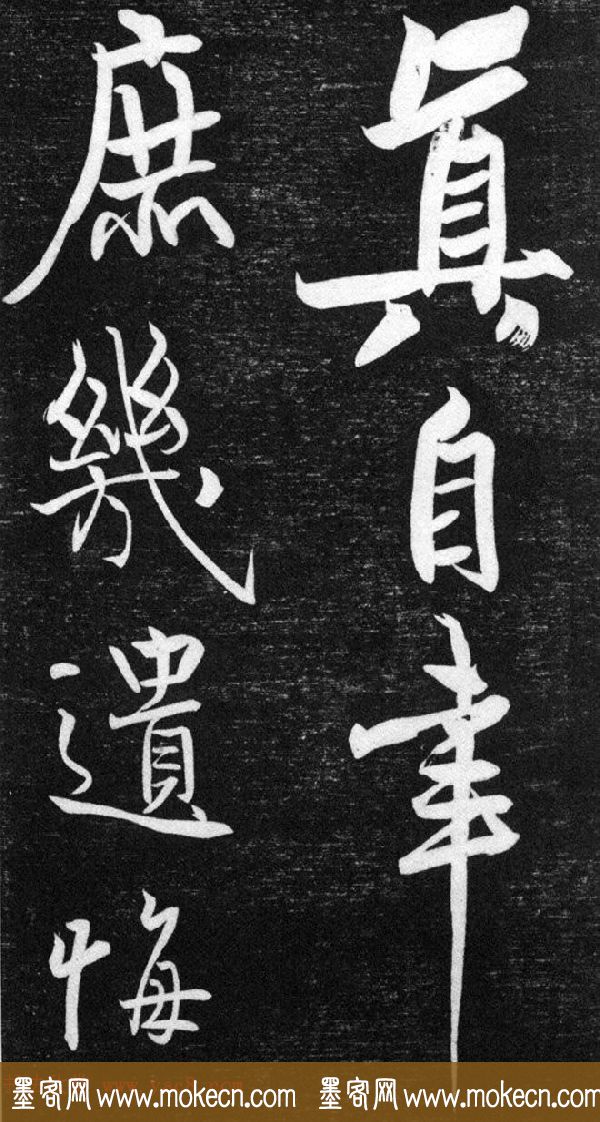 眞自幸
庶幾遺悔
墨客网 www.mokecn.com 墨客网 www.mokecn.com